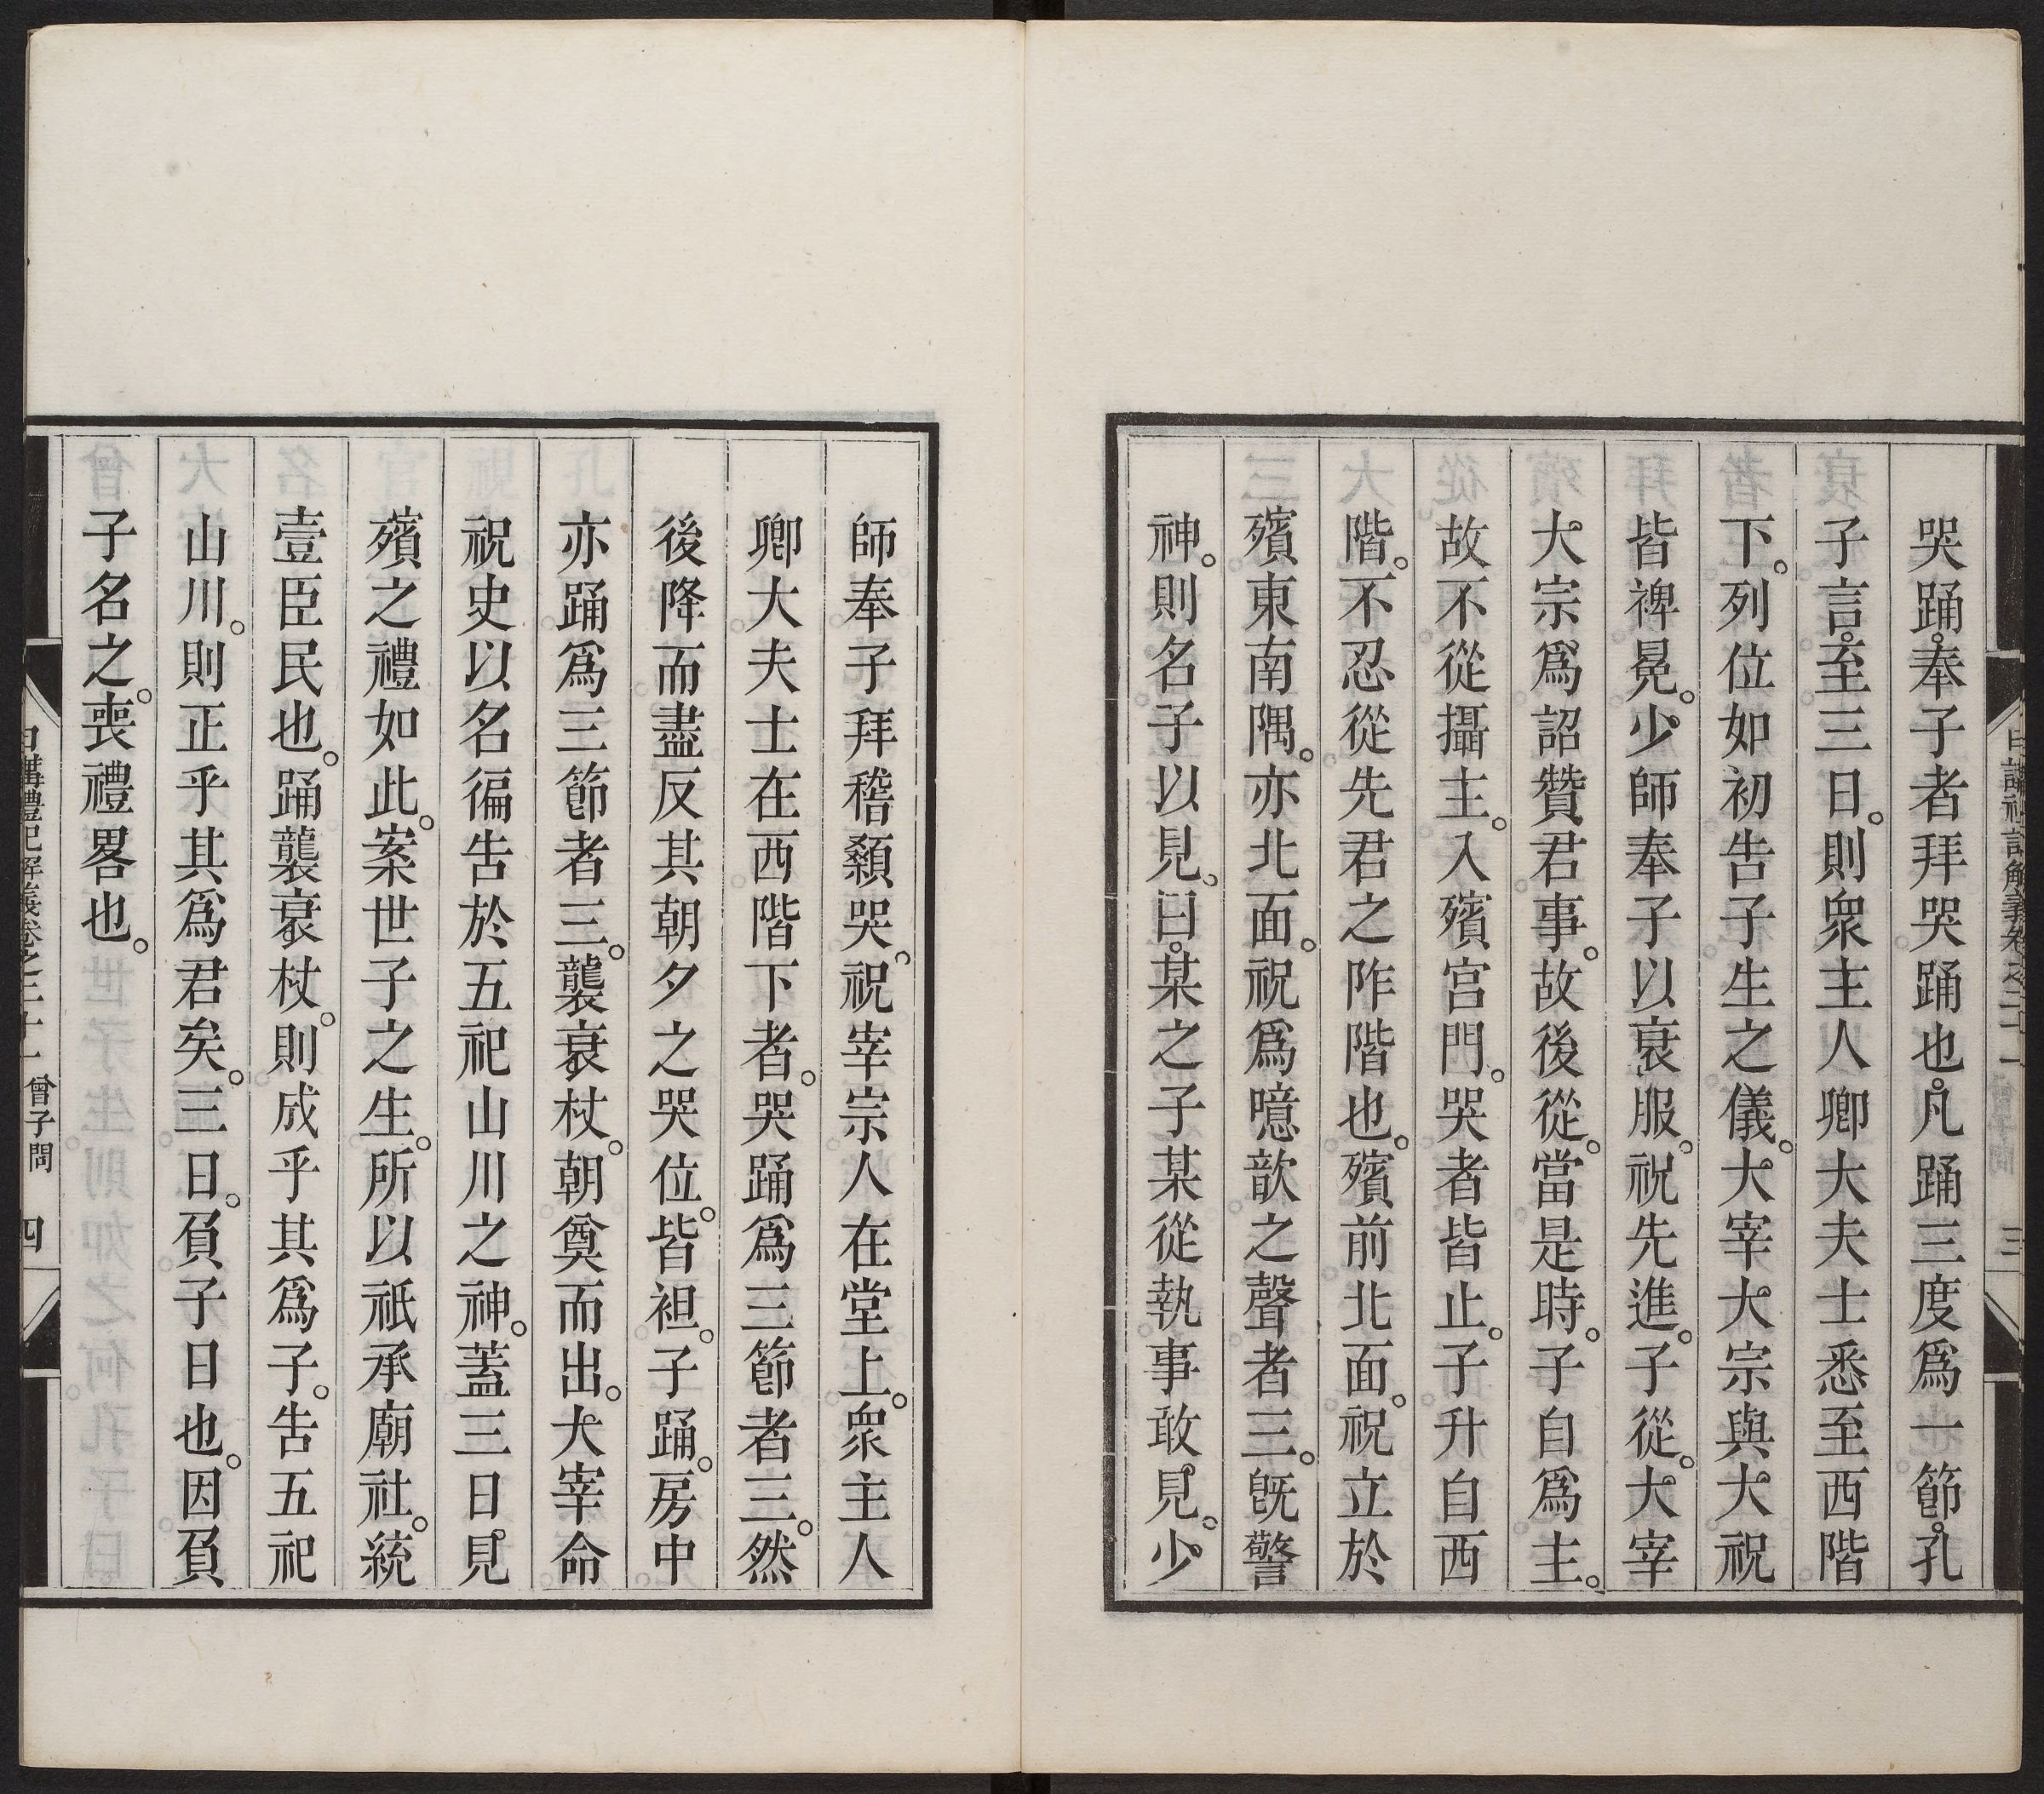 哭踊。奉子者拜哭踊也。凡踊三度爲一節。孔
子言。至三日。則衆主人卿大夫士悉至西階
下。列位如初告子生之儀。大宰大宗與大祝
皆裨冕。少師奉子以衰服。祝先進。子從。大宰
大宗爲詔贊君事。故後從。當是時。子自爲主。
故不從攝主。入殯宮門。哭者皆止。子升自西
階。不忍從先君之阼階也。殯前北面。祝立於
殯東南隅。亦北面。祝爲噫歆之聲者三。旣警
神。則名子以見。曰。某之子某從執事敢見。少
日講禮記解義卷之二十一 三
師奉子拜稽顙哭。祝宰宗人在堂上。衆主人
卿大夫士在西階下者。哭踊爲三節者三。然
後降而盡反其朝夕之哭位。皆袒。子踊。房中
亦踊爲三節者三。襲衰杖。朝奠而出。大宰命
祝史以名徧告於五祀山川之神。蓋三日見
殯之禮如此。案世子之生。所以祇承廟社。統
壹臣民也。踊襲衰杖。則成乎其爲子。告五祀
山川。則正乎其爲君矣。三日。負子日也。因負
子名之。喪禮畧也。
日講禮記解義卷之二十一 曾子問 四